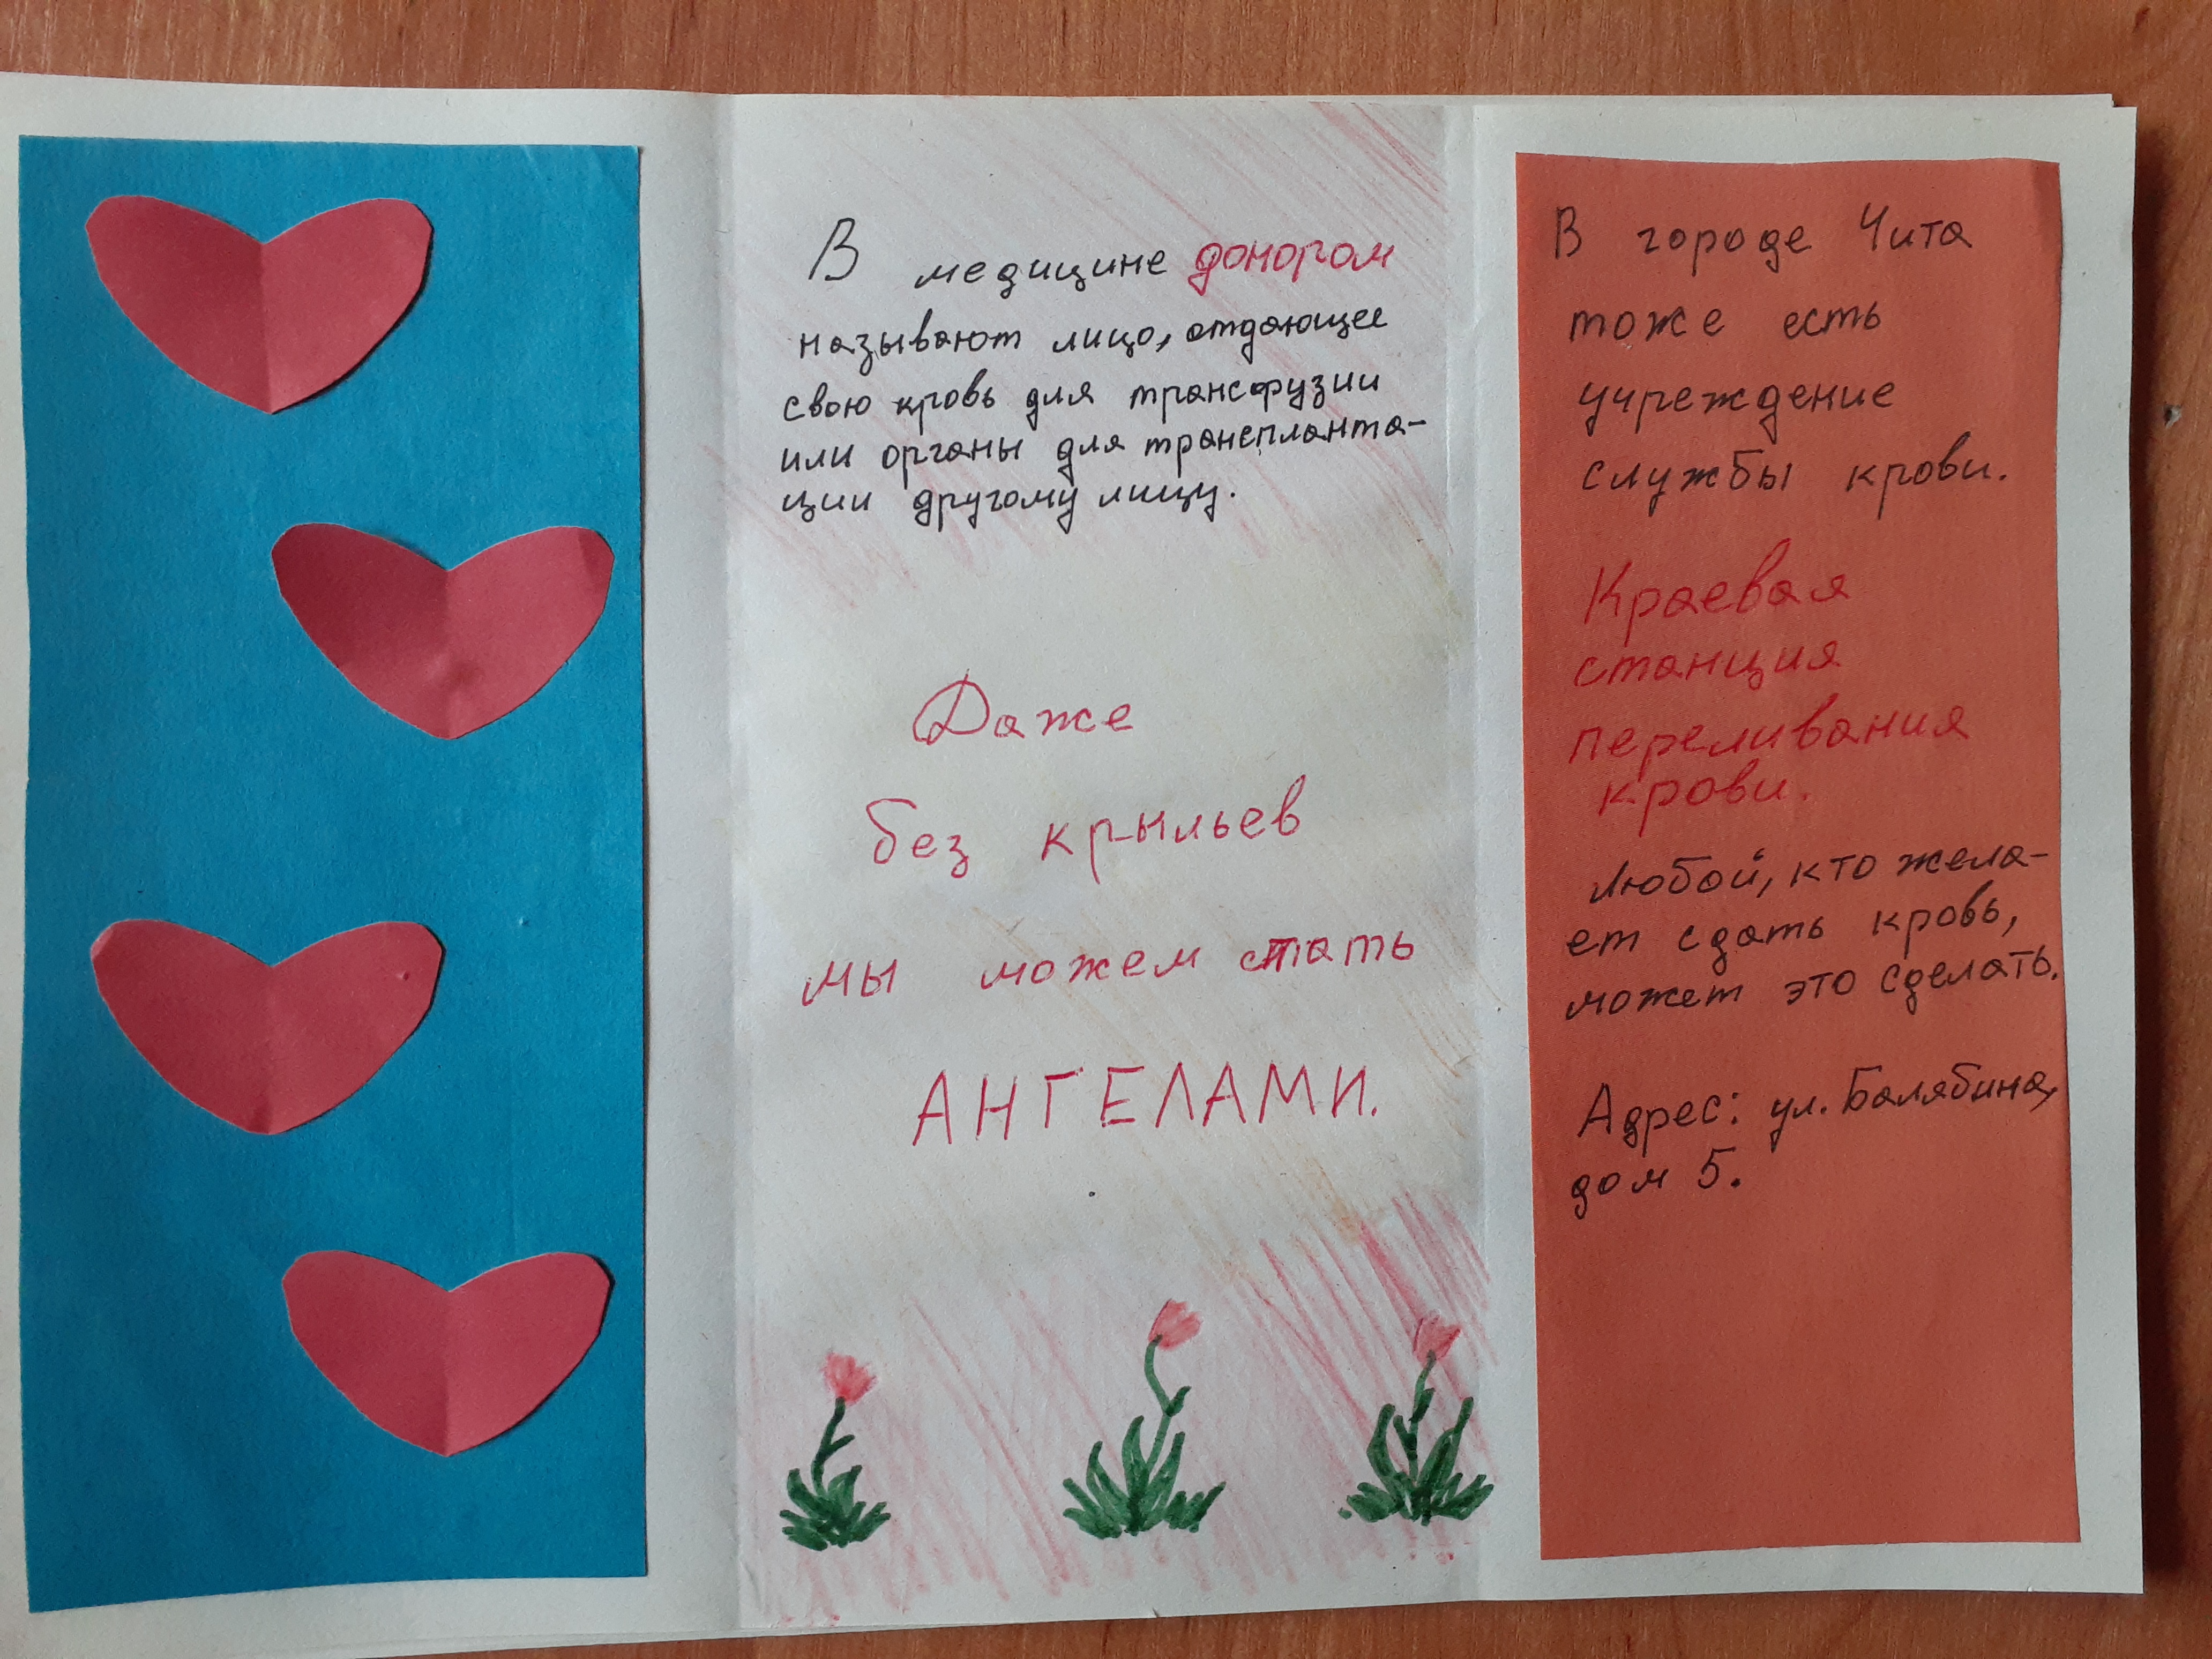 В медицине донором
называют лицо, отдающее
свою кровь для трансфузии
или органы для транспланта-
ции другому лицу.
Даже
без крыльев
мы можем стать
АНГЕЛАМИ.
В городе Чита
тоже есть
учреждение
службы крови.
Краевая
станция
переливания
крови.
Любой, кто жела-
ет сдать кровь,
может это сделать.
Адрес: ул. Балябина,
дом 5.